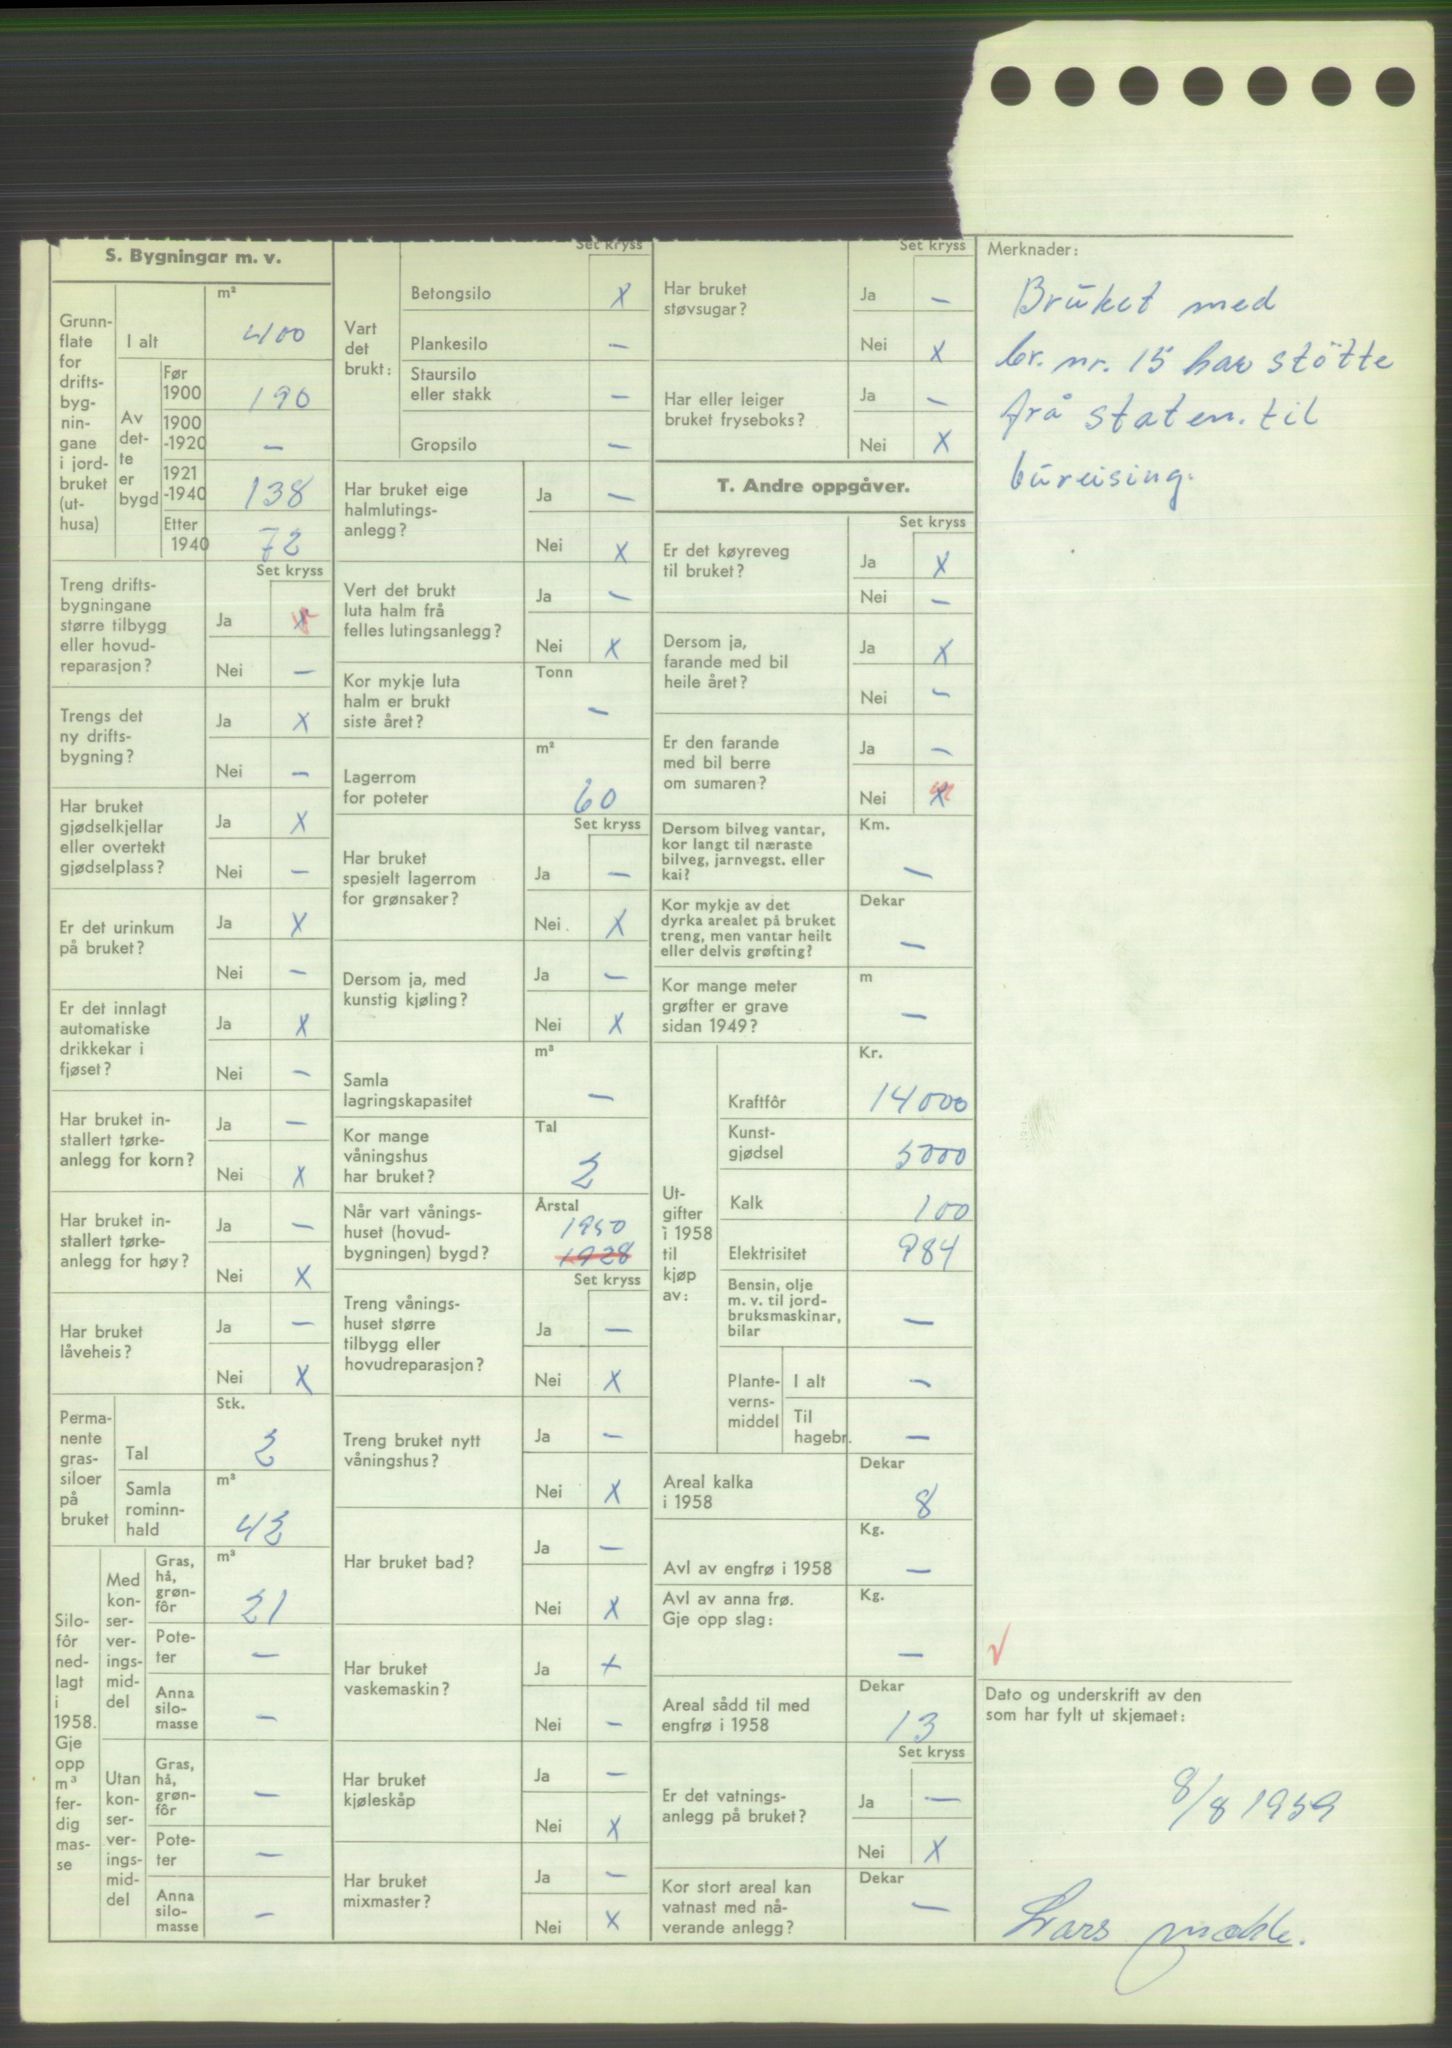 S. Bygningar m. v.
Grunn-
flate
for
drifts-
byg-
nin-
gane
i jord-
bruket
(ut-
husa)
m²
I alt 400
Av
det-
te
er
bygd
Før
1900 190
1900
-1920 –
1921
-1940 138
Etter
1940 72
Set kryss
Treng drifts-
bygningane
større tilbygg
eller hovud-
reparasjon?
Ja x
Nei –
Trengs det
ny drifts-
bygning?
Ja x
Nei –
Har bruket
gjødselkjellar
eller overtekt
gjødselplass?
Ja x
Nei –
Er det urinkum
på bruket?
Ja x
Nei –
Er det innlagt
automatiske
drikkekar i
fjøset?
Ja x
Nei –
Har bruket in-
stallert tørke-
anlegg for korn?
Ja –
Nei x
Har bruket in-
stallert tørke-
anlegg for høy?
Ja –
Nei x
Har bruket
låveheis?
Ja –
Nei x
Perma-
nente
gras-
siloer
på
bruket
Stk.
Tal 2
m³
Samla
rominn-
hald 42
Silo-
fôr
ned-
lagt
i
1958.
Gje
opp
m³
fer-
dig
mas-
se
Med
kon-
ser-
ver-
ings-
mid-
del
m³
Gras,
hå,
grøn-
fôr 21
Pote-
ter –
Anna
silo-
masse –
Utan
kon-
ser-
ver-
ings-
mid-
del
Gras,
hå,
grøn-
fôr –
Pote-
ter –
Anna
silo-
masse –
Set kryss
Vart
det
brukt:
Betongsilo x
Plankesilo –
Staursilo
eller stakk –
Gropsilo –
Har bruket eige
halmlutings-
anlegg?
Ja –
Nei x
Vert det brukt
luta halm frå
felles lutingsanlegg?
Ja –
Nei x
Kor mykje luta
halm er brukt
siste året?
Tonn
–
Lagerrom
for poteter
m²
60
Set kryss
Har bruket
spesjelt lagerrom
for grønsaker?
Ja –
Nei. x
Dersom ja, med
kunstig kjøling?
Ja –
Nei x
Samla
lagringskapasitet
m³
–
Kor mange
våningshus
har bruket?
Tal
2
Når vart vånings-
huset (hovud-
bygningen) bygd?
Årstal
1950
1928
Set kryss
Treng vånings-
huset større
tilbygg eller
hovudreparasjon?
Ja –
Nei x
Treng bruket nytt
våningshus?
Ja –
Nei x
Har bruket bad?
Ja –
Nei x
Har bruket
vaskemaskin?
Ja x
Nei –
Har bruket
kjøleskåp
Ja –
Nei x
Har bruket
mixmaster?
Ja –
Nei x
Set kryss
Har bruket
støvsugar?
Ja –
Nei x
Har eller leiger
bruket fryseboks?
Ja –
Nei x
T. Andre oppgåver.
Set kryss
Er det køyreveg
til bruket?
Ja x
Nei –
Dersom ja,
farande med bil
heile året?
Ja x
Nei –
Er den farande
med bil berre
om sumaren?
Ja –
Nei x
Dersom bilveg vantar,
kor langt til næraste
bilveg, jarnvegst. eller
kai?
Km.
–
Kor mykje av det
dyrka arealet på bruket
treng, men vantar heilt
eller delvis grøfting?
Dekar
–
Kor mange meter
grøfter er grave
sidan 1949?
m
–
Ut-
gifter
i 1958
til
kjøp
av:
Kr.
Kraftfôr 14000
Kunst-
gjødsel 5000
Kalk 100
Elektrisitet 984
Bensin, olje
m. v. til jord-
bruksmaskinar,
bilar –
Plante-
verns-
middel
I alt –
Til
hagebr. –
Areal kalka
i 1958
Dekar
8
Avl av engfrø i 1958
Kg.
–
Avl av anna frø.
Gje opp slag:
Kg.
–
Areal sådd til med
engfrø i 1958
Dekar
13
Set kryss
Er det vatnings-
anlegg på bruket?
Ja –
Nei x
Kor stort areal kan
vatnast med nå-
verande anlegg?
Dekar
–
Merknader:
Bruket med
br. nr. 15 har støtte
frå staten. til
bureising.
Dato og underskrift av den
som har fylt ut skjemaet:
8/8 1959
Lars Mæhle.